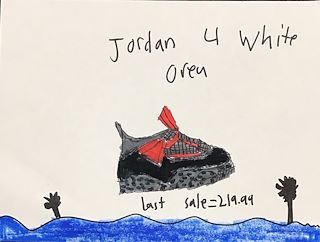 Jordan 4 White
Oreu
last sale=219.99